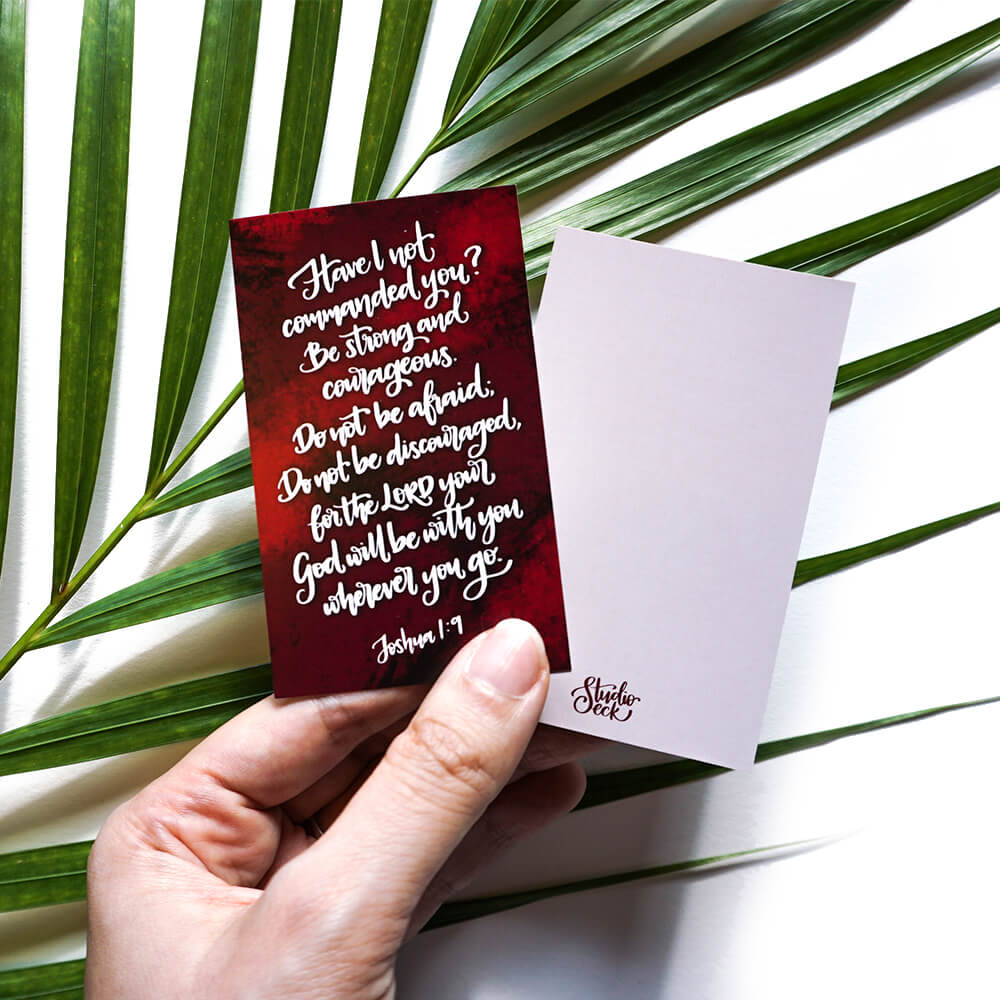 Have I not
commanded you?
Be strong and
courageous.
Do not be afraid;
Do not be discouraged,
for the LORD your
God will be with you
wherever you go.
Joshua 1:9
Studio
eck